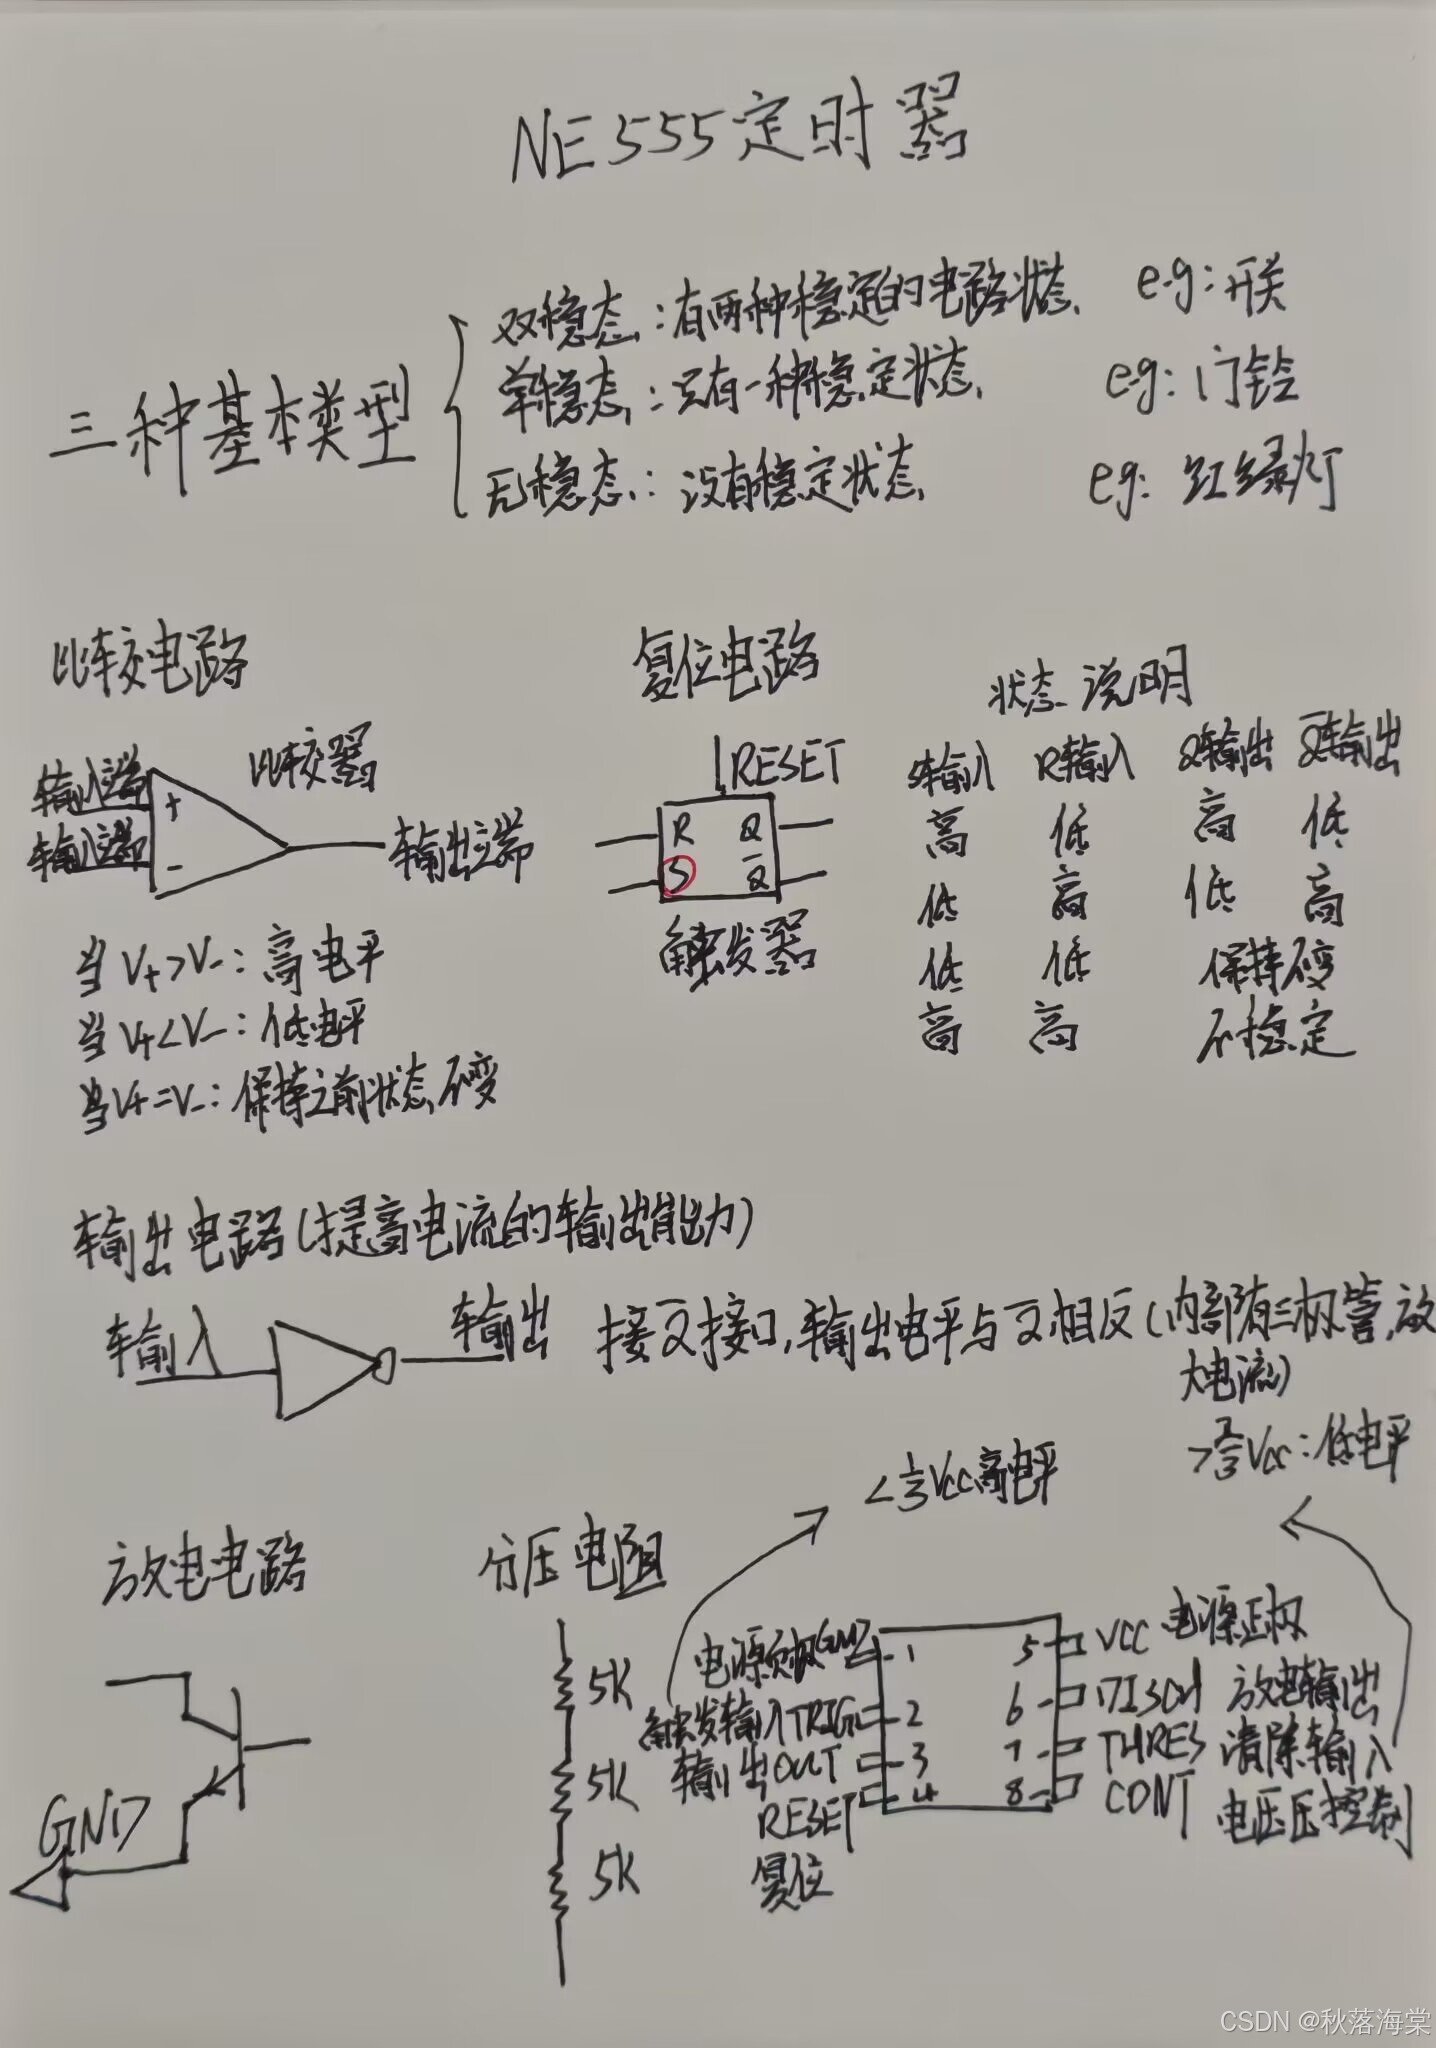 NE555定时器
三种基本类型
双稳态：有两种稳定的电路状态 e.g：开关
单稳态：只有一种稳定状态 eg：门铃
无稳态：没有稳定状态 eg：红绿灯
比较电路
输入端 + 比较器
输入端 -
输出端
当V+>V-：高电平
当V+<V-：低电平
当V+=V-：保持之前状态不变
复位电路
RESET
R Q
S Q̅
触发器
状态说明
S输入 R输入 Q输出 Q̅输出
高 低 高 低
低 高 低 高
低 低 保持不变
高 高 不稳定
输出电路(提高电流的输出能力)
输入 输出
接Q̅接口,输出电平与Q̅相反(内部有三极管,放
大电流)
<1/3Vcc高电平
>2/3Vcc：低电平
放电电路
GND
分压电阻
5K
5K
5K
电源负极GND 1 5 VCC 电源正极
触发输入TRIG 2 6 DISCH 放电输出
输出OUT 3 7 THRES 清除输入
RESET 4 8 CONT 电压压控制
复位
CSDN @秋落海棠